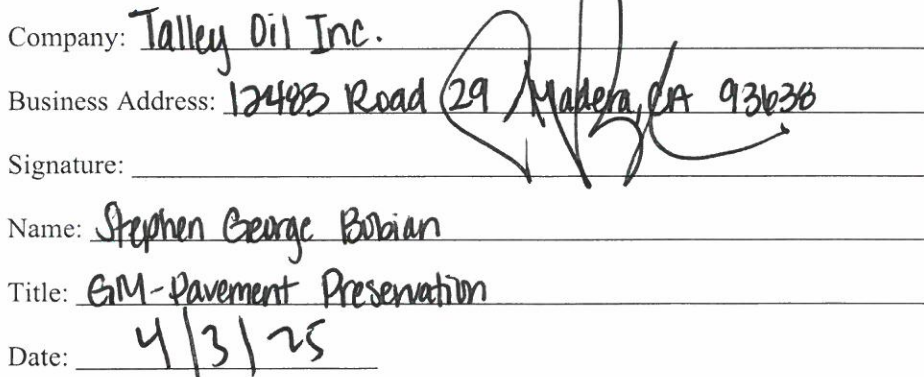 Company: Talley Oil Inc.
Business Address: 12483 Road 29 Madera, CA 93638
Signature:
Name: Stephen George Bobian
Title: GM-Pavement Preservation
Date: 4/3/25